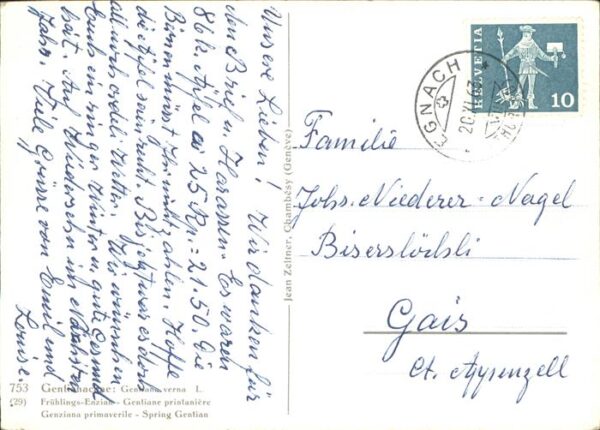 Unsere Lieben! Wir danken für
den Brief u. Harassen. Es waren
86 k. Äpfel a 25 Rp. = 21.50. Die
Birnen müsst Ihr nicht zahlen. Hoffe
die Äpfel sein recht. Bis jetzt war es doch
all noch ordeli Wetter. Wir wünschen
Euch ein ringer Winter u. gute Gesund
heit. Auf Wiedersehn im Nächsten
Jahr. Viele Grüsse von Emil und
Louise.
753 Gentianaceae: Gentiana verna L.
(29) Frühlings-Enzian - Gentiane printanière
Genziana primaverile - Spring Gentian
Jean Zeltner, Chambésy (Genève)
HELVETIA
10
EGNACH
20.XI.63
Familie
Johs. Niederer-Nagel
Gais
Ct. Appenzell